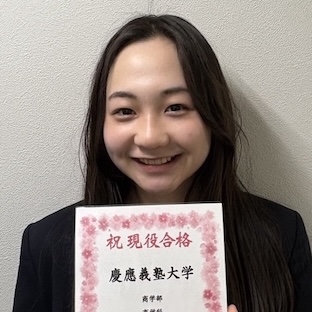 祝 現役合格
慶應義塾大学
商学部
商学科